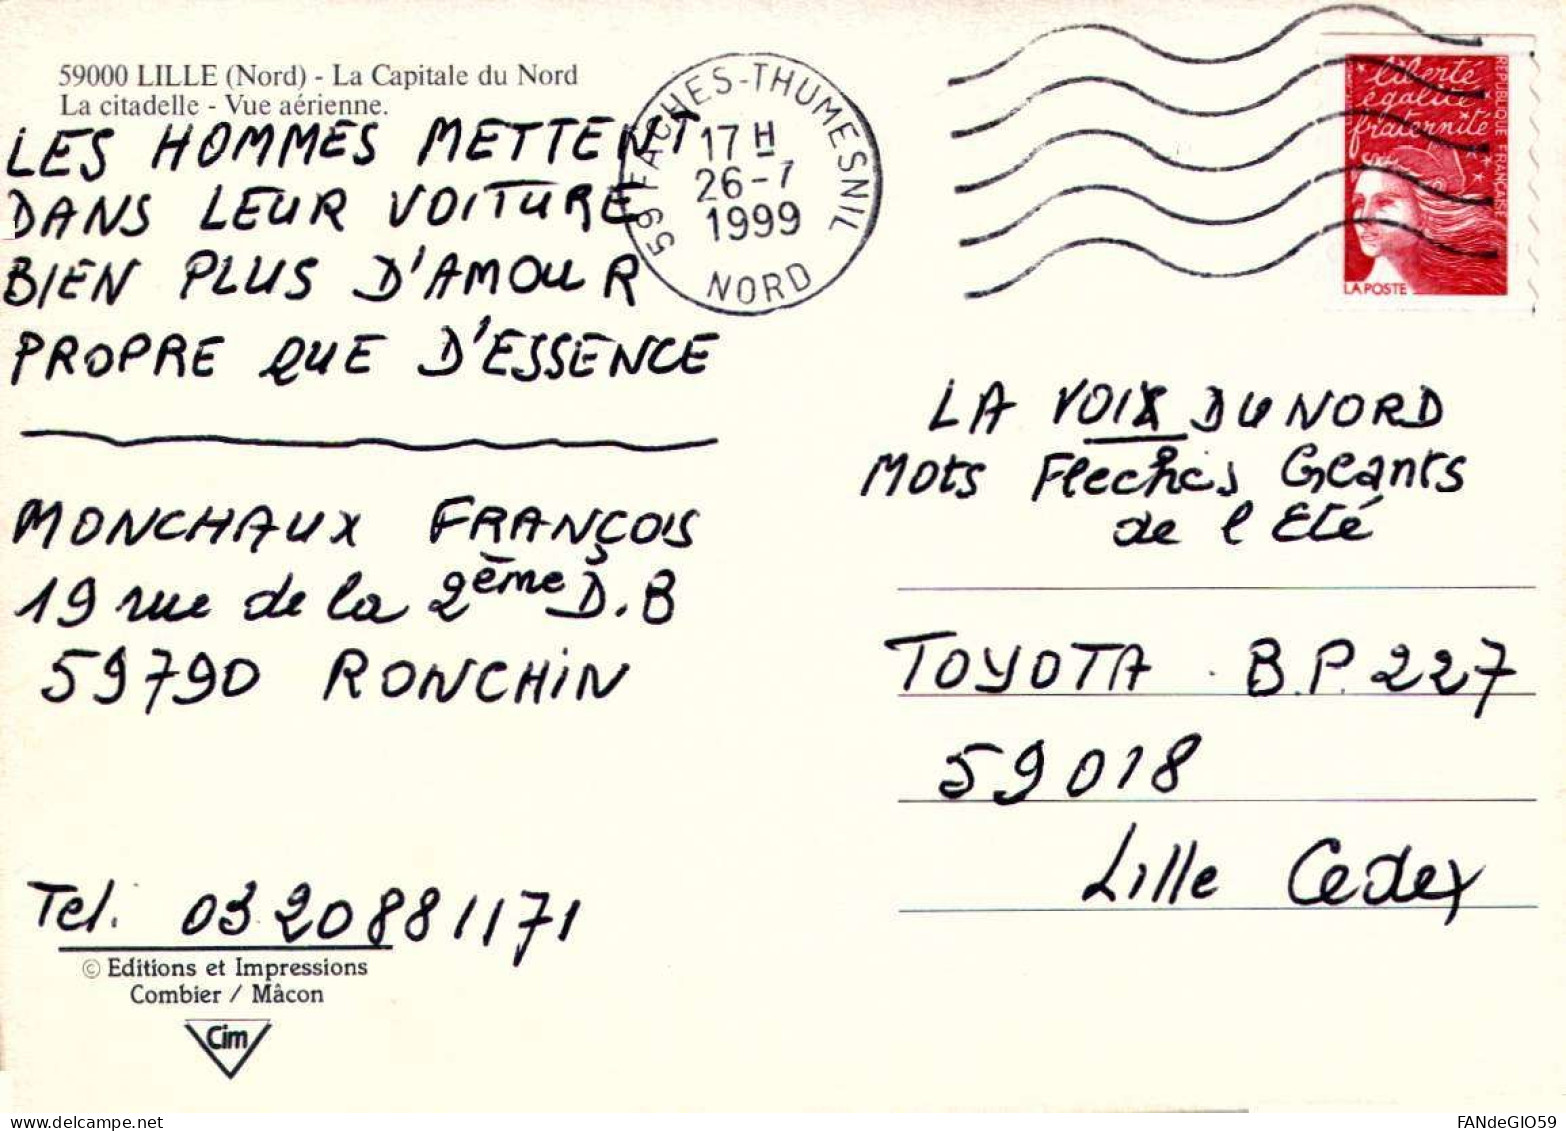 59000 LILLE (Nord) - La Capitale du Nord
La citadelle - Vue aérienne.
LES HOMMES METTENT
DANS LEUR VOITURE
BIEN PLUS D'AMOUR
PROPRE QUE D'ESSENCE
MONCHAUX FRANÇOIS
19 rue de la 2ème D.B
59790 RONCHIN
Tel. 0320881171
© Editions et Impressions
Combier / Mâcon
Cim
59 FACHES-THUMESNIL
17 H
26-7
1999
NORD
liberté
égalité
fraternité
RÉPUBLIQUE FRANÇAISE
LA POSTE
LA VOIX DU NORD
Mots Flechés Geants
de l Eté
TOYOTA B.P. 227
59018
Lille Cedex
FANdeGIO59